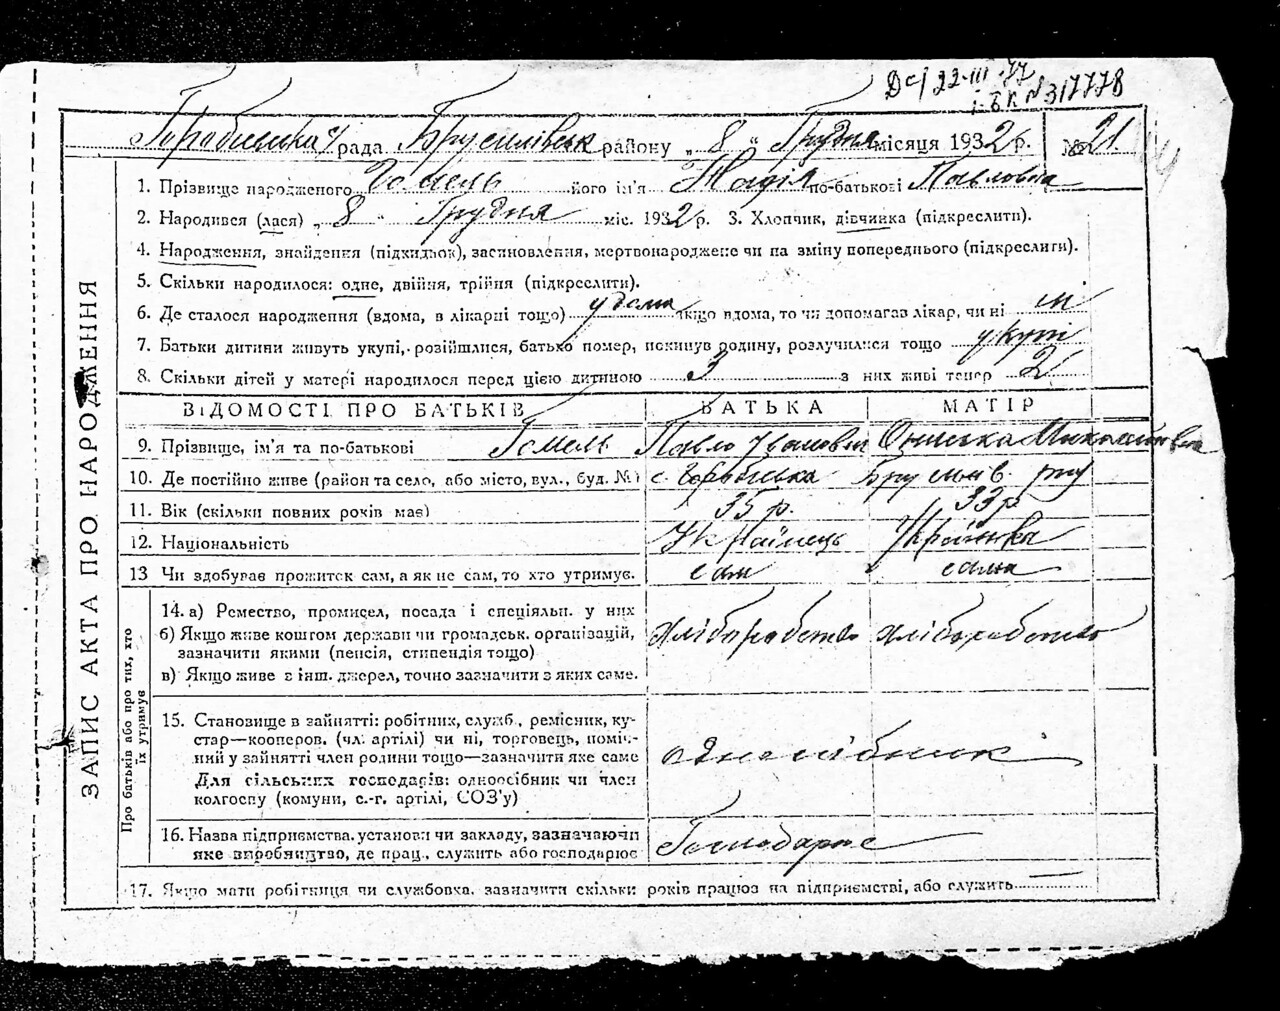 22·III·77
І-БК №317778
рада Брусилівськ району „ 8 “ Грудня місяця 1932 р. № 21
1. Прізвище народженого Гомель його ім'я Надія по-батькові Павловна
2. Народився (лася) „ 8 “ Грудня міс. 1932 р. 3. Хлопчик, дівчинка (підкреслити).
4. Народження, знайдення (підкидьок), застновлення, мертвонароджене чи на зміну попереднього (підкреслити).
5. Скільки народилося: одне, двійня, трійня (підкреслити).
6. Де сталося народження (вдома, в лікарні тощо) у дома якщо вдома, то чи допомагав лікар, чи ні ні
7. Батьки дитини живуть укупі, розійшлися, батько помер, покинув родину, розлучилися тощо укупі
8. Скільки дітей у матері народилося перед цією дитиною 3 з них живі тепер 2
ВІДОМОСТІ ПРО БАТЬКІВ БАТЬКА МАТІР
9. Прізвище, ім'я та по-батькові Гомель Павло Іванович Ониська Миколаївна
10. Де постійно живе (район та село, або місто, вул., буд. №) с. Брусилів. р-ну
11. Вік (скільки повних років має) 35 р. 33 р
12. Національність Українець Українка
13 Чи здобував прожиток сам, а як не сам, то хто утримує. сам сама
14. а) Ремество, промисел, посада і спеціяльн. у них
б) Якщо живе коштом держави чи громадськ. організацій, хліборобство хліборобство
зазначити якими (пенсія, стипендія тощо)
в) Якщо живе з інш. джерел, точно зазначити з яких саме.
15. Становище в зайнятті: робітник, служб., ремісник, ку-
стар—кооперов. (чл. артілі) чи ні, торговець, поміч-
ний у зайнятті член родини тощо—зазначити яке саме одноосібник
Для сільських господарів: одноосібник чи член
колгоспу (комуни, с.-г. артілі, СОЗ'у)
16. Назва підприємства, установи чи закладу, зазначаючи
яке виробництво, де прац., служить або господарює Господарює
17. Якщо мати робітниця чи службовка, зазначити скільки років працює на підприємстві, або служить —
ЗАПИС АКТА ПРО НАРОДЖЕННЯ
Про батьків або про тих, хто
їх утримує